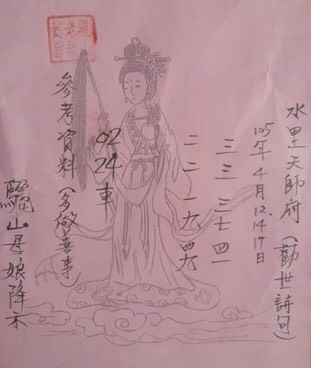 水里天師府(勸世詩句)
105年4月12.14.17日
三三 三七 四一
二二 一九
02
24
車
參考資料(多做善事
驪山母娘降示